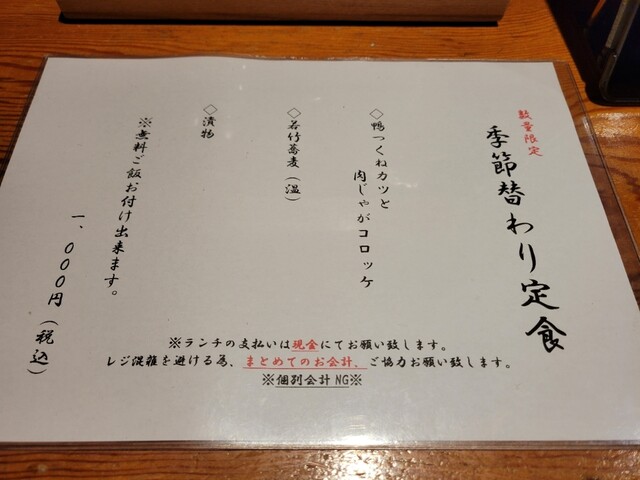 数量限定
季節替わり定食
◇鴨つくねカツと
肉じゃがコロッケ
◇若竹蕎麦(温)
◇漬物
※無料ご飯お付け出来ます。
一、000円(税込)
※ランチの支払いは現金にてお願い致します。
レジ混雑を避ける為、まとめてのお会計、ご協力お願い致します。
※個別会計NG※